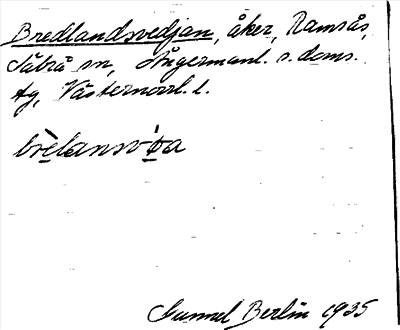 Bredlandsvedjan, åker, Ramsås,
Säbrå sn, Ångermanl. s. doms.
tg, Västernorrl. l.
brèlansvǿa
Gunnel Berlin 1935